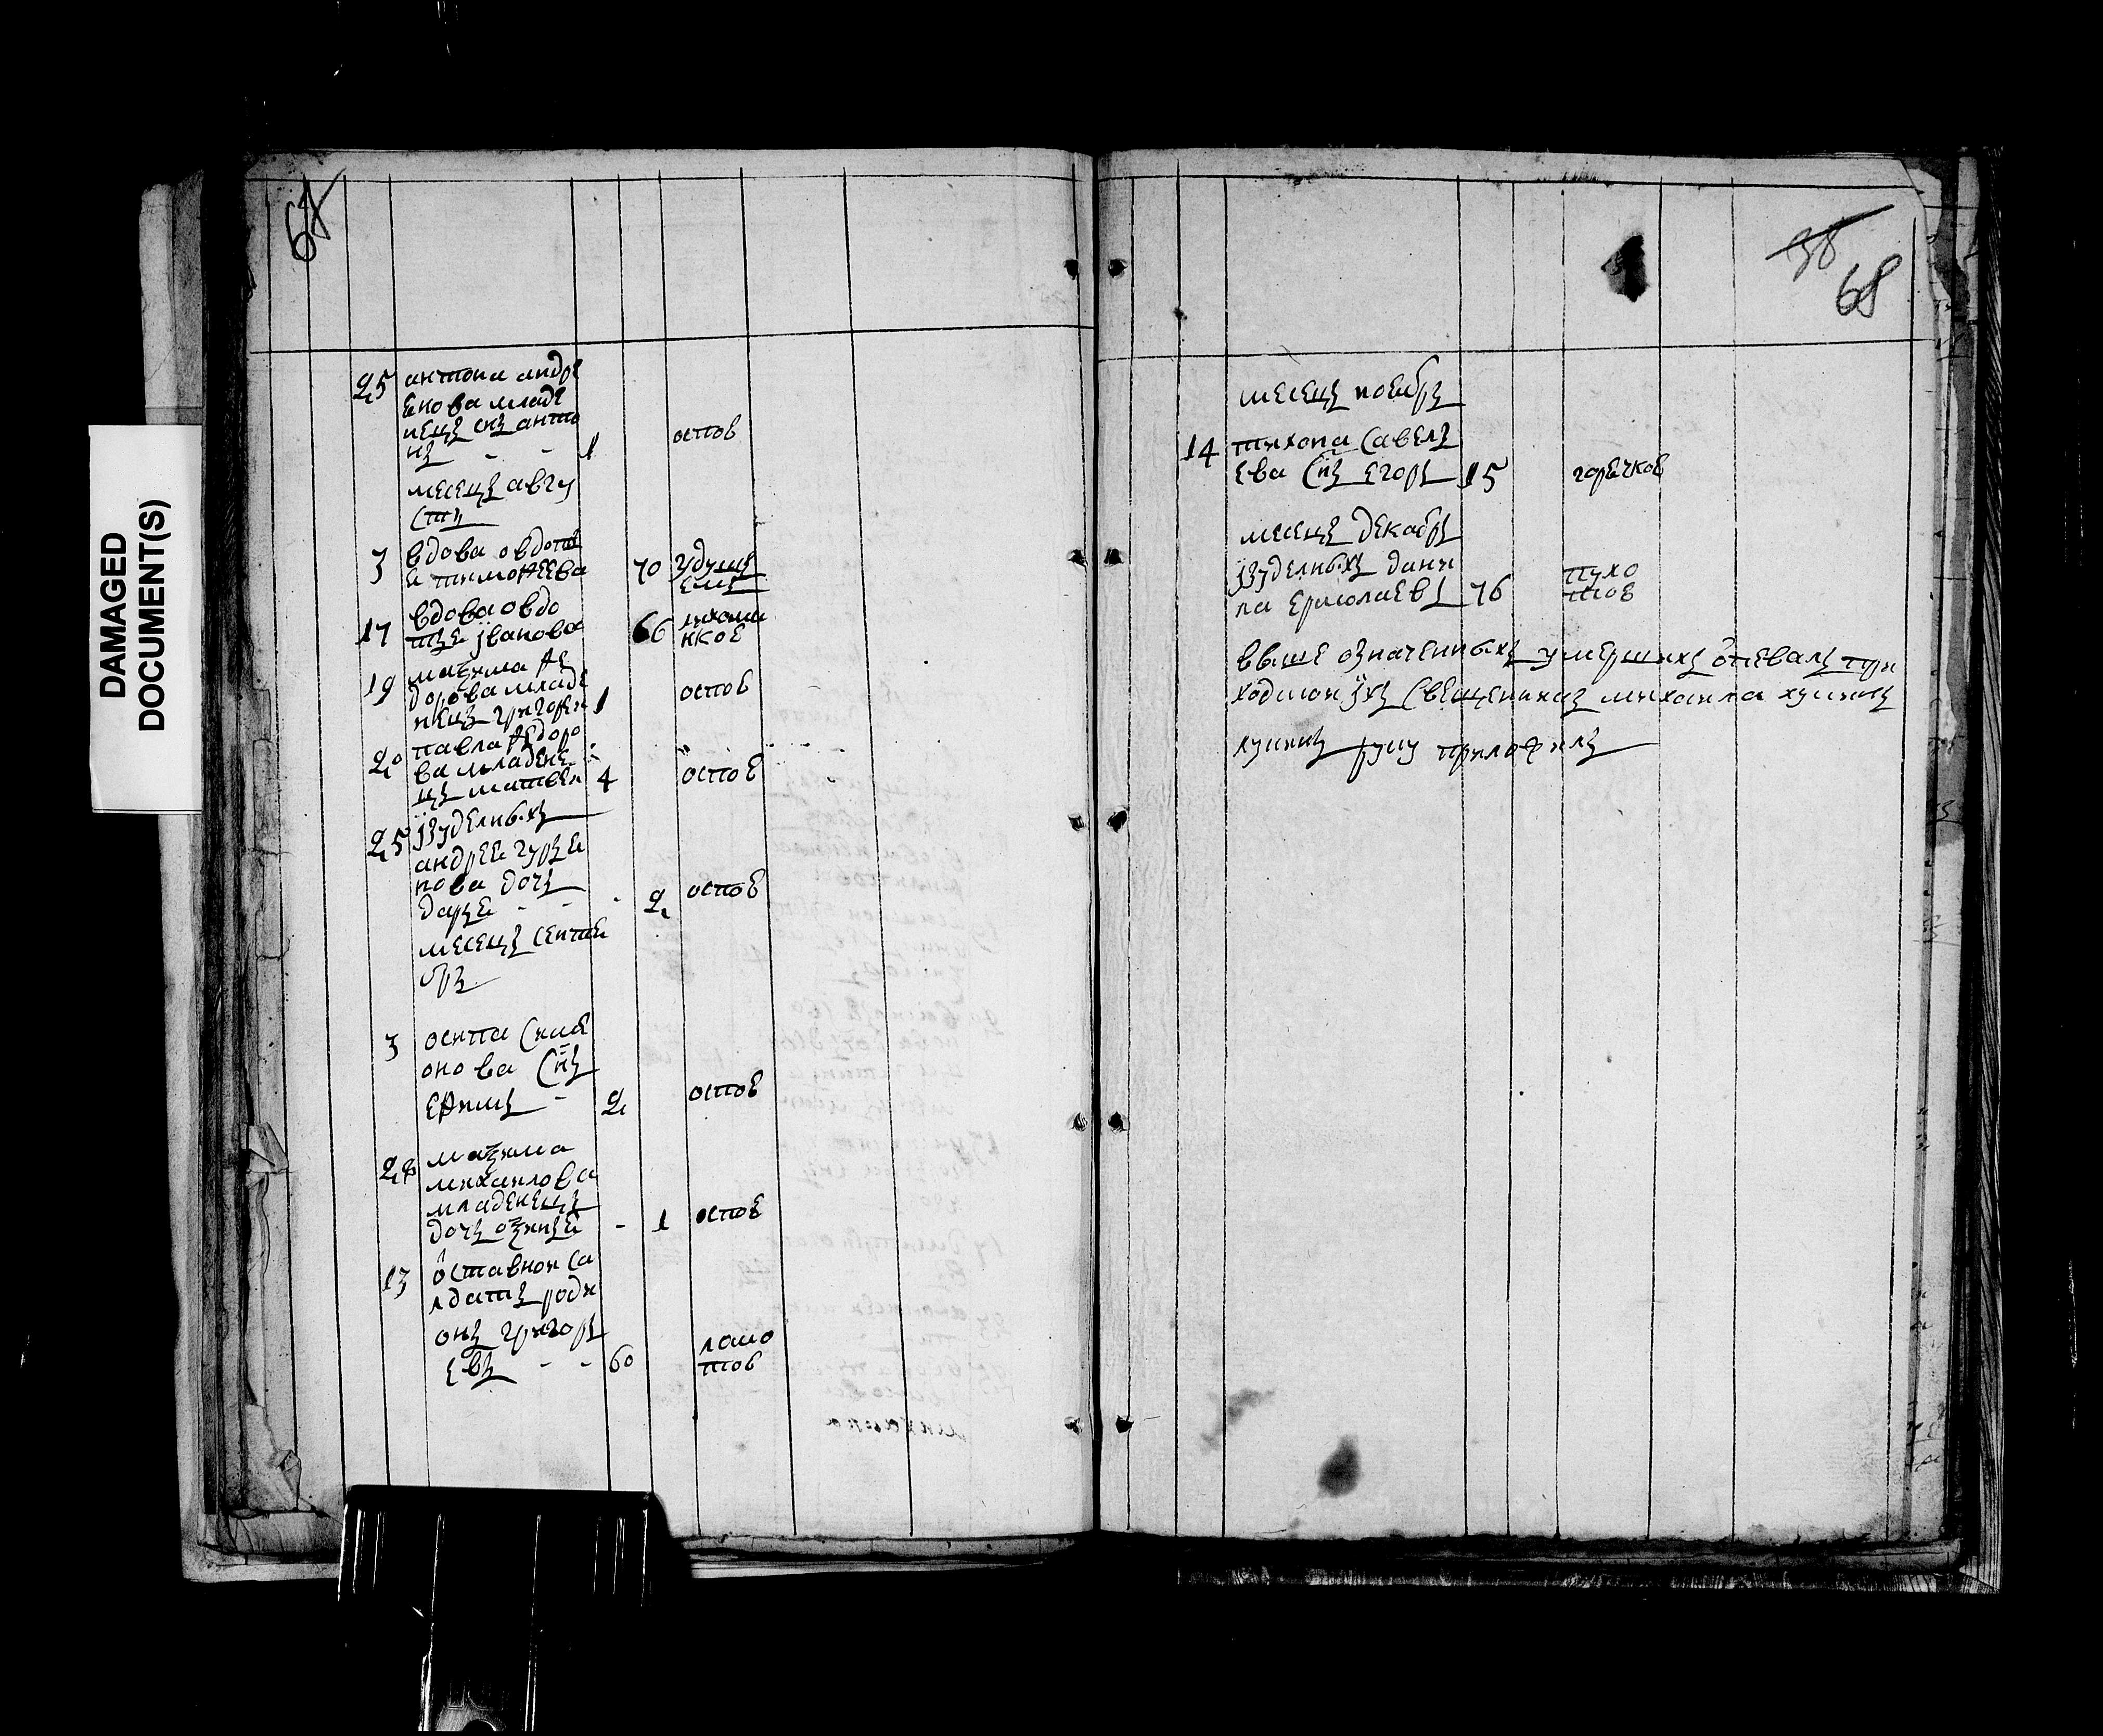 DAMAGED
DOCUMENT(S)
68
25 антона андре
енова младе
нецъ снъ анто
нъ - - 1 оспоѣ
месецъ авгу
стъ
3 вдова овдоть
я тимоѳеева 70 удушь
емъ
17 вдова овдо
тья јванова 66
19 маѯима ѳе
дорова младе
нецъ григореи 1 оспоѣ
20 павла ѳедоро
ва младене
цъ матвеи 4 оспоѣ
25 јзуделныхъ
андрея гурья
нова дочь
дарья - - - 2 оспоѣ
месецъ сентя
брь
3 осипа сими
онова снъ
ефимъ - 2 оспоѣ
28 маѯима
михаилова
младенецъ
дочь оѯинья - 1 оспоѣ
13 оставнои са
лдатъ роди
онъ григорь
евъ - - 60 ломо
тоѣ
38
68
месецъ ноябрь
14 тихона савель
ева снъ егоръ 15 горячкоѣ
месецъ декабрь
јзуделныхъ дани
ла ермолаевъ 76 пухо
тоѣ
выше означенныхъ умершихъ отпевалъ при
ходцкои јхъ священникъ михаила
руку приложилъ